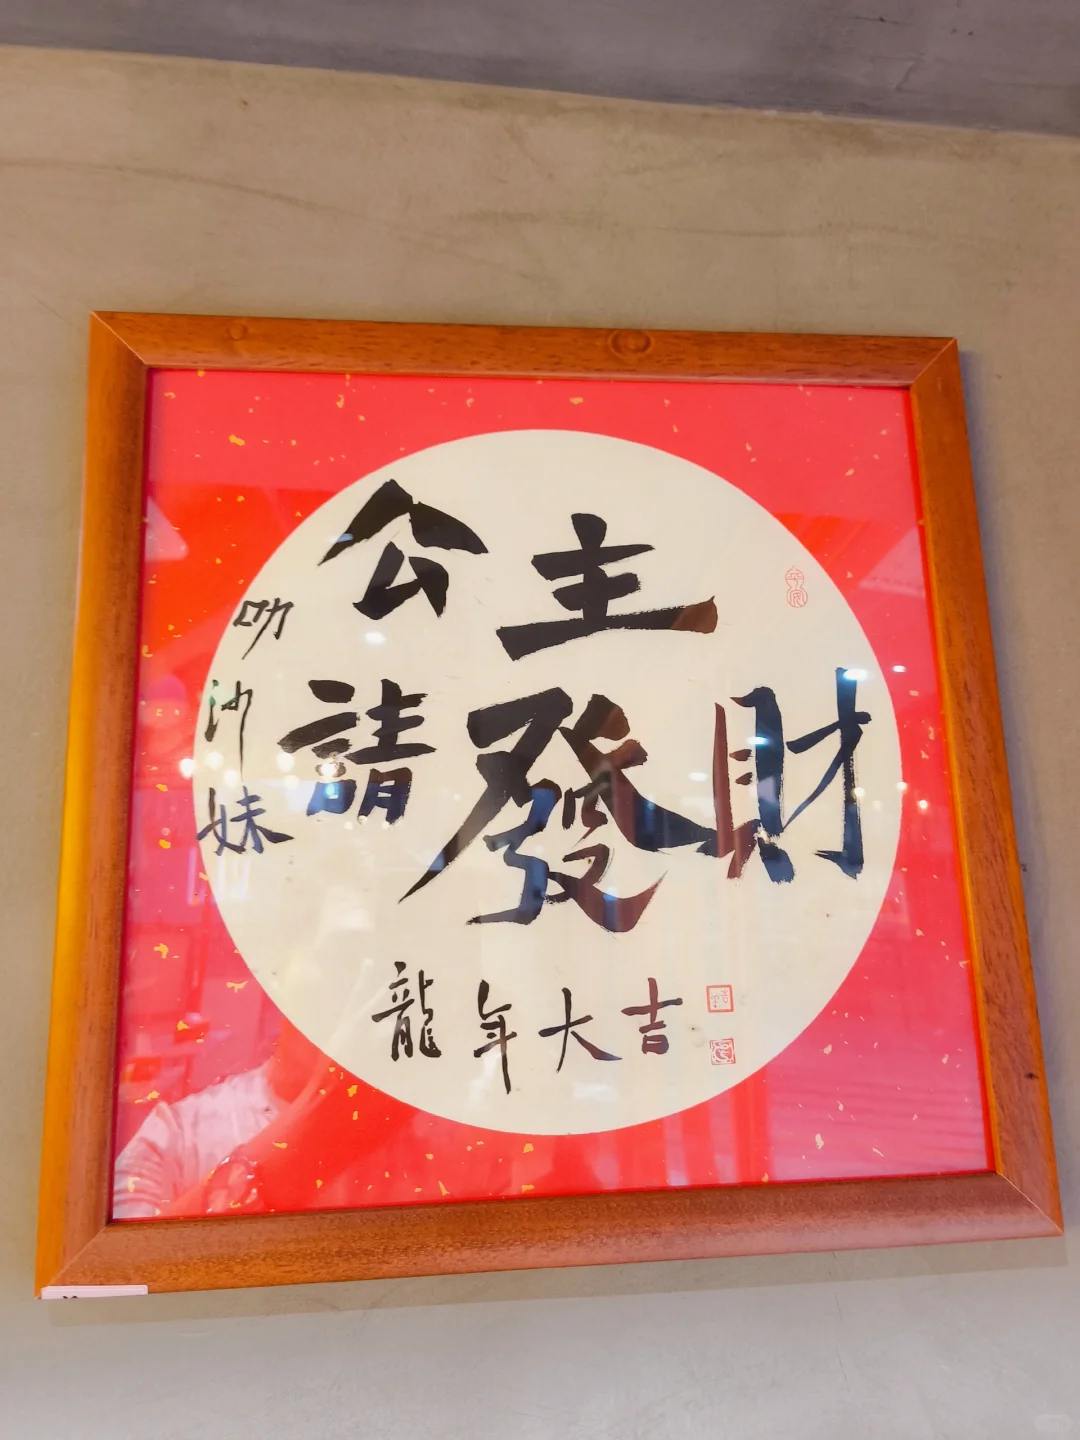 公主
請發財
叻沙妹
龍年大吉
平安